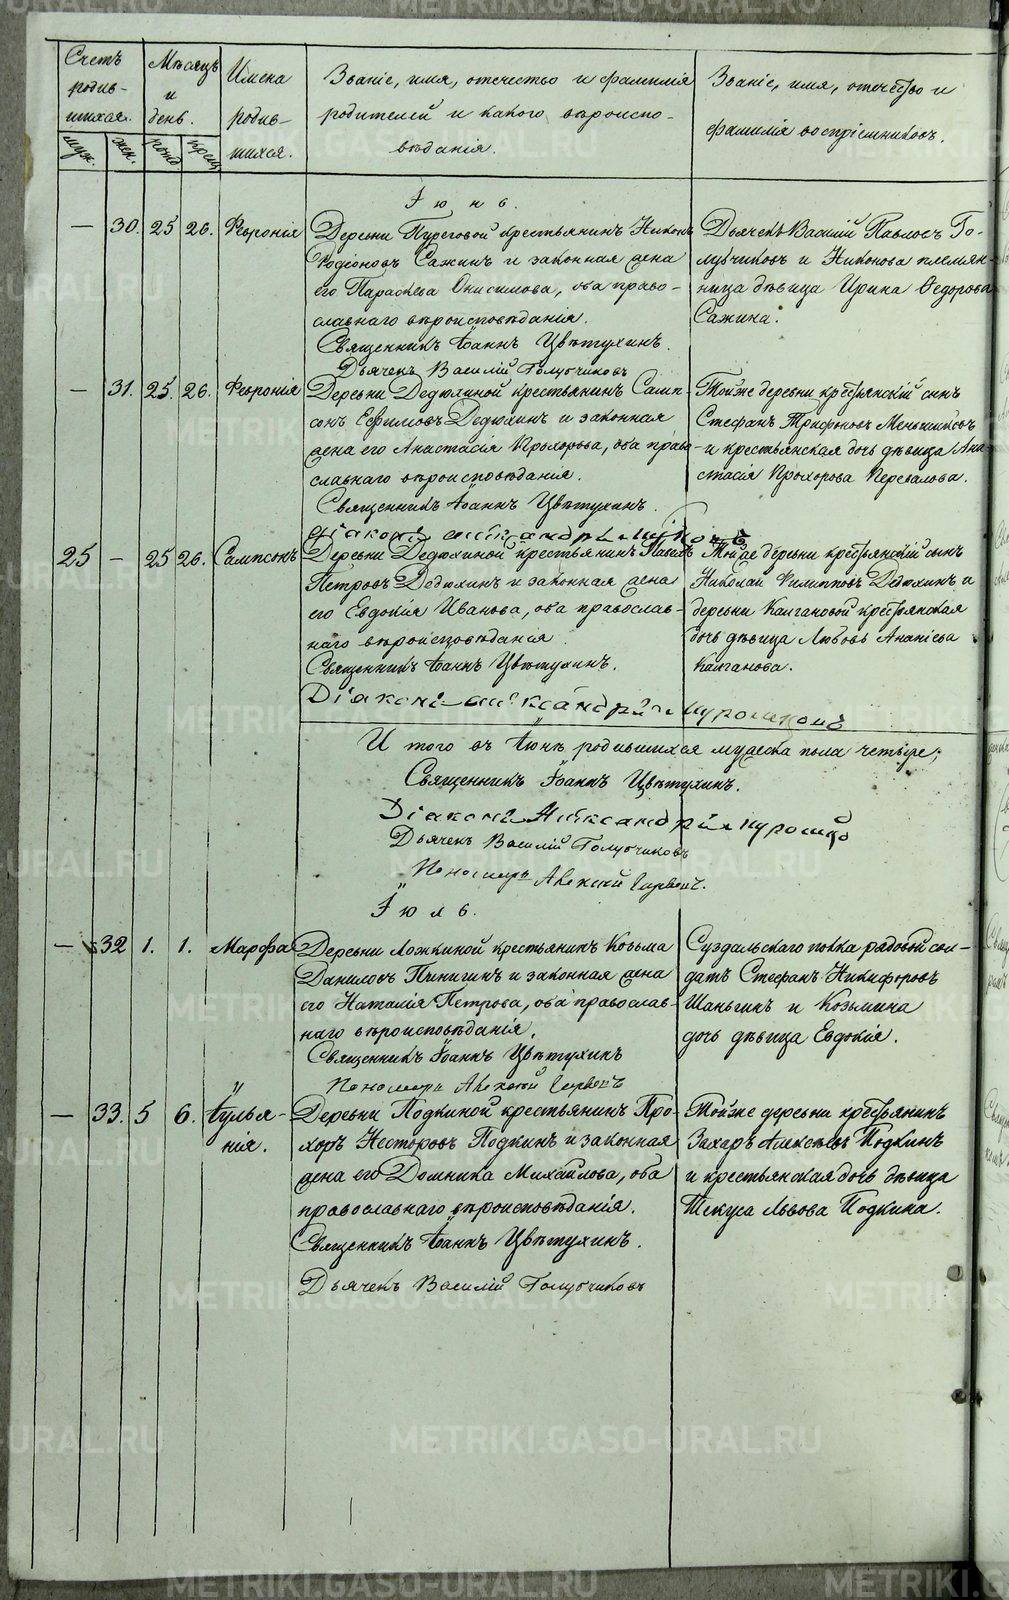 Счетъ родив-
шихся.
Муж.
Жен.
Мѣсяцъ
и
день.
рожд
крещ
Имена
родив-
шихся.
Званіе, имя, отечество и фамилія
родителей и какого вѣроиспо-
вѣданія.
Званіе, имя, отечество и
фамилія воспріемниковъ.
Іюнь.
— 30. 25 26. Февронія
Деревни Пуреговой крестьянинъ Никонъ
Родіоновъ Сажинъ и законная жена
его Параскева Онисимова, оба право-
славнаго вѣроисповѣданія.
Священникъ Іоаннъ Цвѣтухинъ.
Дьячекъ Василій Голубчиковъ
Дьячекъ Василій Павловъ Го-
лубчиковъ и Никонова племян-
ница дѣвица Ирина Ѳедорова
Сажина.
— 31. 25. 26. Февронія
Деревни Дедюхиной крестьянинъ Самп-
сонъ Ефимовъ Дедюхинъ и законная
жена его Анастасія Прохорова, оба право-
славнаго вѣроисповѣданія.
Священникъ Іоаннъ Цвѣтухинъ.
Діаконъ
Тойже деревни крестьянскій сынъ
Стефанъ Трифоновъ Меньшиковъ
и крестьянская дочь дѣвица Ана-
стасія Прохорова Перевалова.
25 — 25 26. Сампсонъ
Деревни Дедюхиной крестьянинъ Павелъ
Петровъ Дедюхинъ и законная жена
его Евдокія Иванова, оба православ-
наго вѣроисповѣданія
Священникъ Іоаннъ Цвѣтухинъ.
Діаконъ
Тойже деревни крестьянскій сынъ
Николай Филипповъ Дедюхинъ и
деревни Калгановой крестьянская
дочь дѣвица Любовь Ананіева
Калганова.
И того въ Іюнѣ родившихся мужеска пола четыре;
Священникъ Іоаннъ Цвѣтухинъ.
Діаконъ
Дьячекъ Василій Голубчиковъ
Пономарь Алексѣй
Іюль.
— 32 1. 1. Марѳа
Деревни Ложкиной крестьянинъ Козьма
Даниловъ Пинигинъ и законная жена
его Наталія Петрова, оба православ-
наго вѣроисповѣданія.
Священникъ Іоаннъ Цвѣтухинъ
Пономарь Алексѣй
Суздальскаго полка рядовой сол-
датъ Стефанъ Никифоровъ
Шаньгинъ и Козьмина
дочь дѣвица Евдокія.
— 33. 5 6. Іулья-
нія.
Деревни Подкиной крестьянинъ Про-
хоръ Несторовъ Подкинъ и законная
жена его Домника Михайлова, оба
православнаго вѣроисповѣданія.
Священникъ Іоаннъ Цвѣтухинъ.
Дьячекъ Василій Голубчиковъ
Тойже деревни крестьянинъ
Захаръ Алексѣевъ Подкинъ
и крестьянская дочь дѣвица
Текуса Львова Подкина.
METRIKI.GASO-URAL.RU